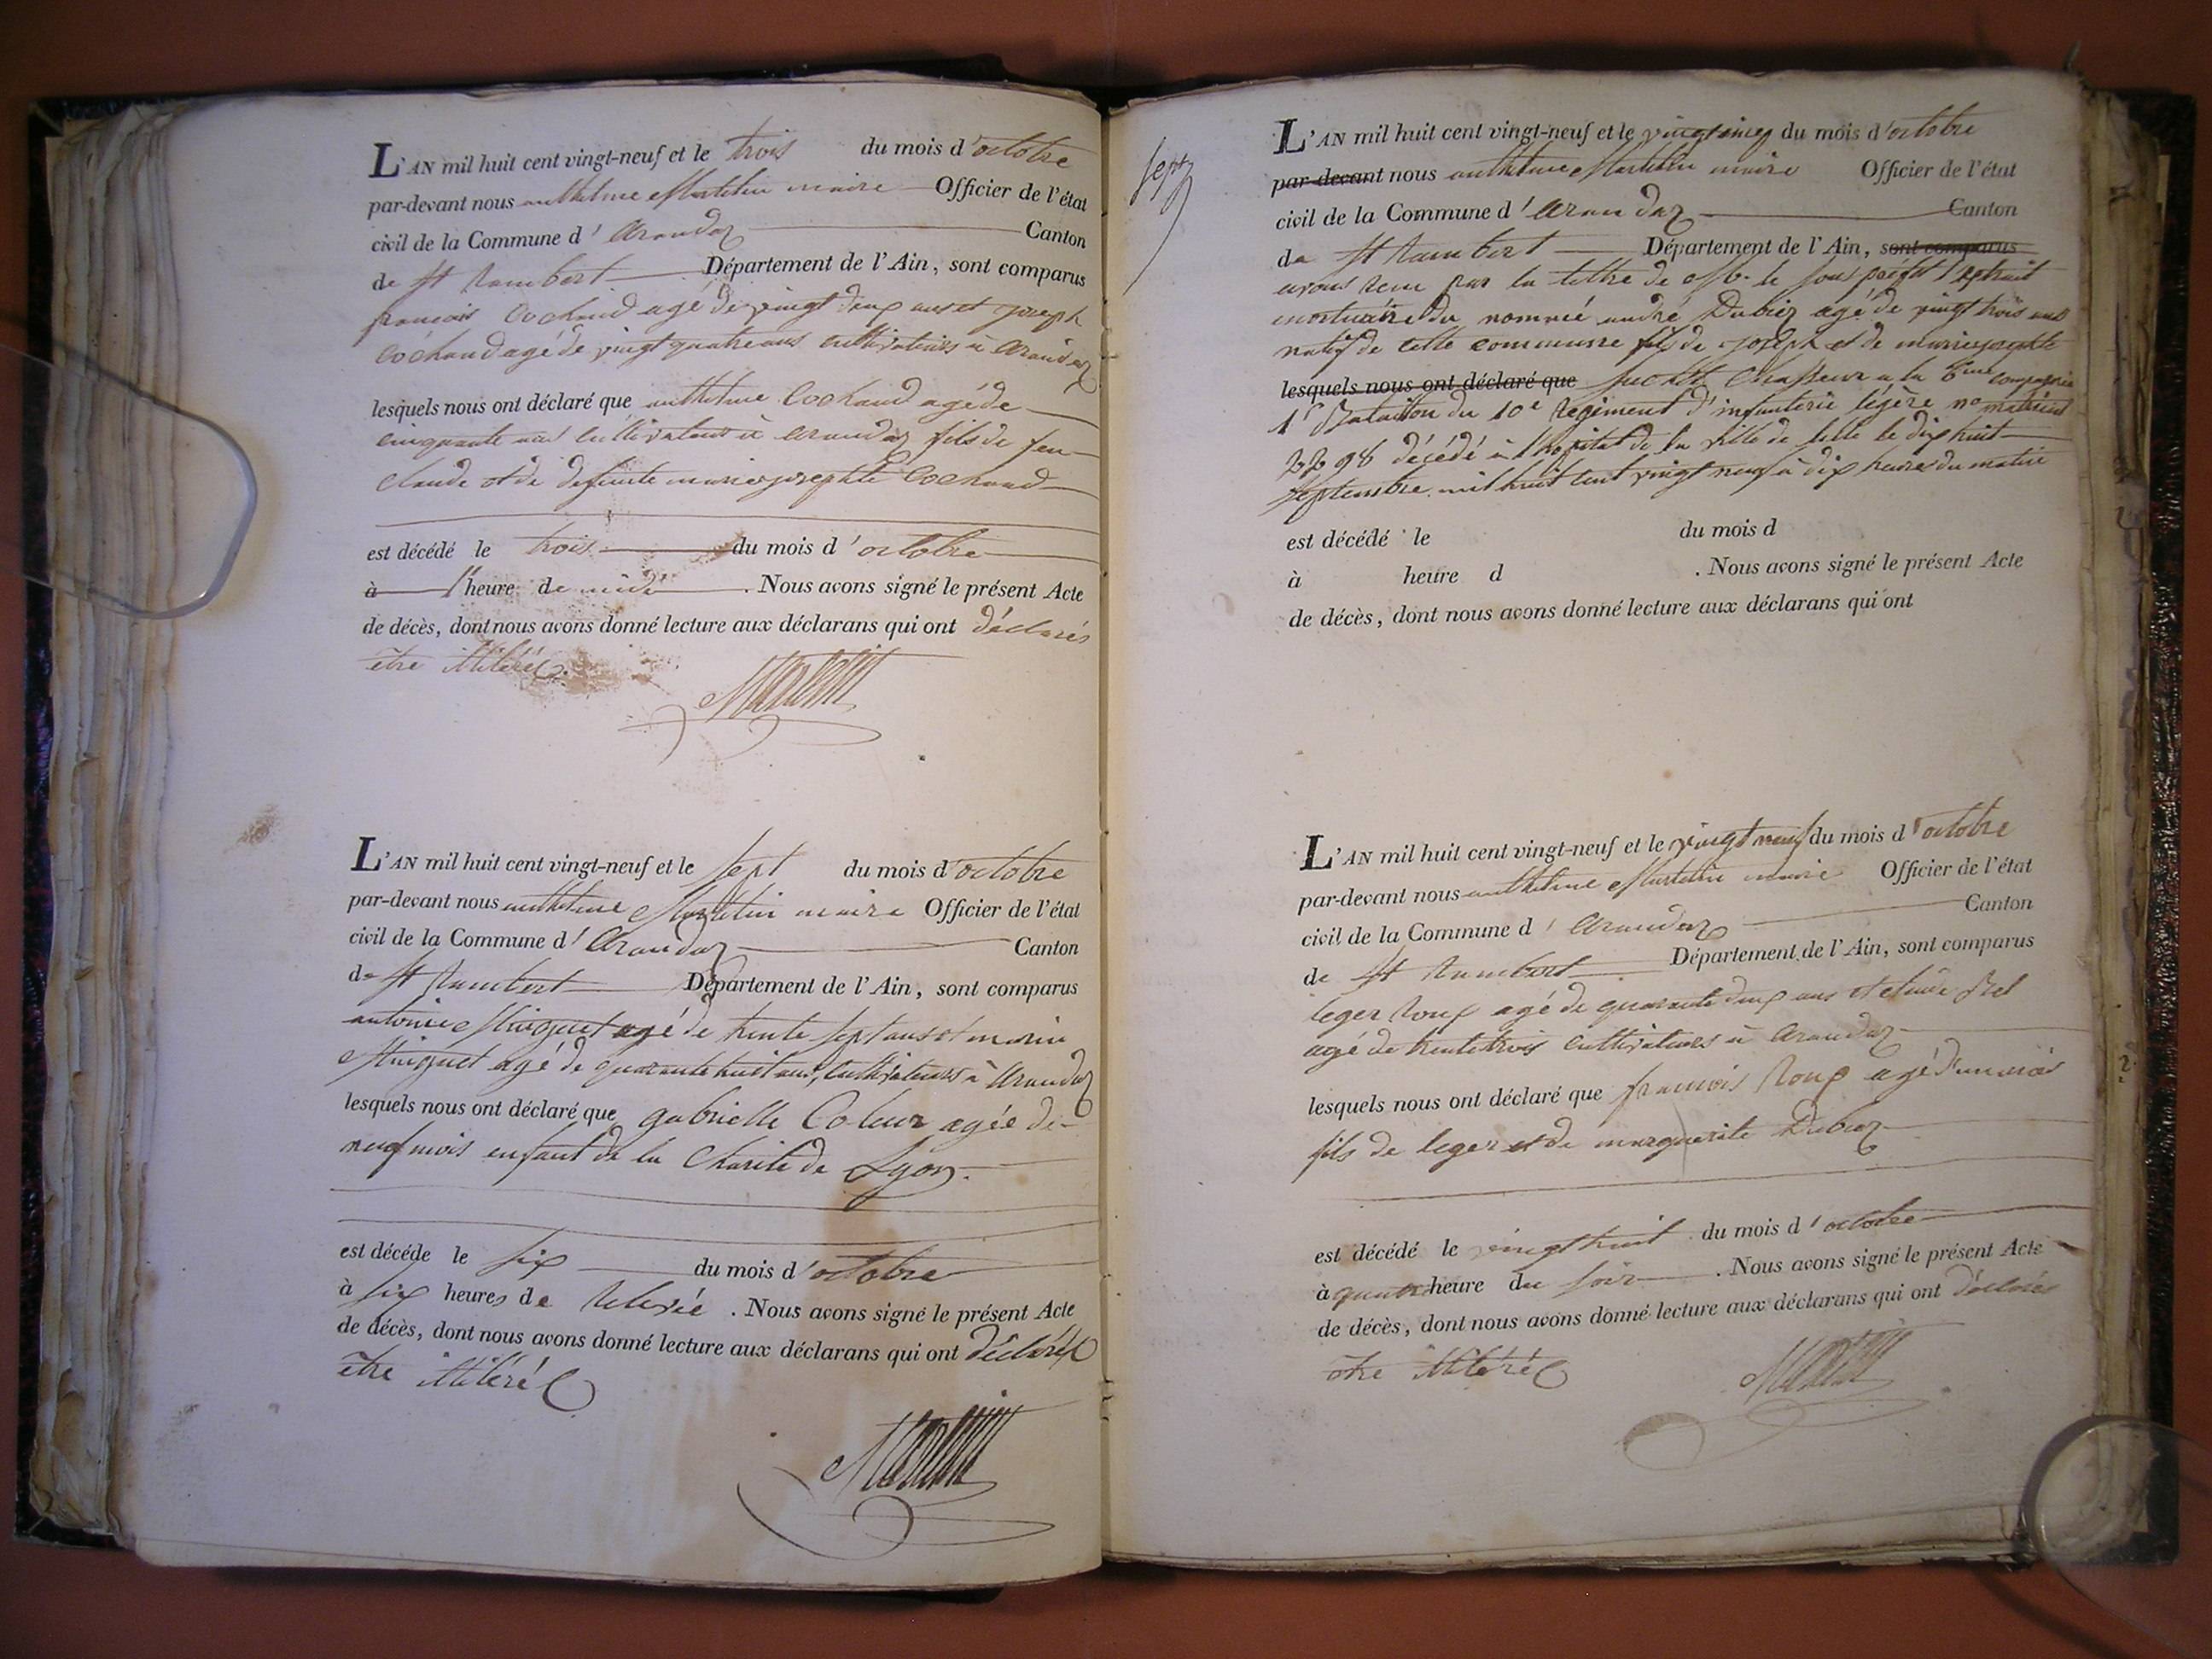 L'AN mil huit cent vingt-neuf et le trois du mois d'octobre
par-devant nous anthelme Martelin maire Officier de l'état
civil de la Commune d'Arandaz Canton
de St Rambert Département de l'Ain, sont comparus
francois Cochand agé de vingt deux ans et joseph
Cochand agé de vingt quatre ans cultivateurs a arandaz
lesquels nous ont déclaré que anthelme Cochand agé de
cinquante ans cultivateur à arandaz fils de feu
claude et de defunte marie josephte Cochand
est décédé le trois du mois d'octobre
à l'heure de midi. Nous avons signé le présent Acte
de décès, dont nous avons donné lecture aux déclarans qui ont déclarés
être illitérés.
L'AN mil huit cent vingt-neuf et le sept du mois d'octobre
par-devant nous anthelme Martelin maire Officier de l'état
civil de la Commune d'Arandaz Canton
de St Rambert Département de l'Ain, sont comparus
antoine Minguet agé de trente sept ans et marin
Minguet agé de quarante huit ans, cultivateurs à Arandaz
lesquels nous ont déclaré que gabrielle agée de
neuf mois enfant de la Charité de Lyon.
est décéde le six du mois d'octobre
à six heures de relevée. Nous avons signé le présent Acte
de décès, dont nous avons donné lecture aux déclarans qui ont déclarés
être illitérés
sept
L'AN mil huit cent vingt-neuf et le vingt cinq du mois d'octobre
par-devant nous anthelme Martelin maire Officier de l'état
civil de la Commune d'Arandaz Canton
de St Rambert Département de l'Ain, sont comparus
avons recu par la lettre de Mr. le sous préfet l'extrait
mortuaire du nommé andré Dubiez agé de vingt trois ans
natif de cette commune fils de joseph et de marie josephte
lesquels nous ont déclaré que Chasseur a la 6eme compagnie
1r Bataillon du 10e régiment d'infanterie légère no matricul
2298 décédé à l'hopital de la ville de le dix huit
septembre mil huit cent vingt neuf à dix heure du matin
est décédé le du mois d
à heure d . Nous avons signé le présent Acte
de décès, dont nous avons donné lecture aux déclarans qui ont
L'AN mil huit cent vingt-neuf et le vingt neuf du mois d'octobre
par-devant nous anthelme Martelin maire Officier de l'état
civil de la Commune d'Arandaz Canton
de St Rambert Département de l'Ain, sont comparus
leger Roux agé de quarante deux ans et claude
agé de trente trois cultivateurs à Arandaz
lesquels nous ont déclaré que francois Roux agé d'un mois
fils de leger et de marguerite Dubiez
est décédé le vingt huit du mois d'octobre
à quatre heure du soir. Nous avons signé le présent Acte
de décès, dont nous avons donné lecture aux déclarans qui ont déclarés
être illitérés